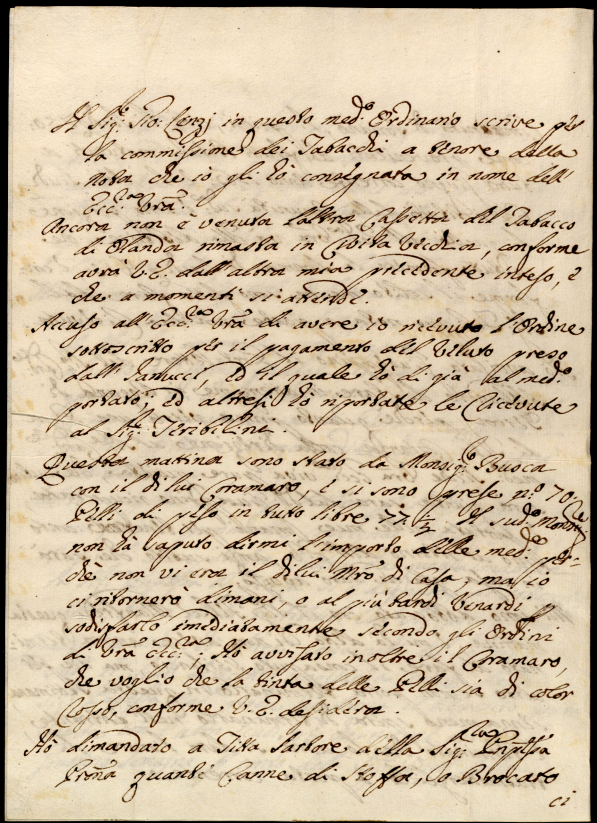 Il Sig.r Gio: Lenzj in questo med.o Ordinario scrive per
la commissione dei Tabacchi a tenore della
Nota che io gli hò consegnata in nome dell'
Ecc.za Vra.
Ancora non è venuta l'altra Cassetta del Tabacco
di Olanda rimasta in Civita Vecchia, conforme
avra V. E. dall'altra mia precedente inteso, e
che a momenti si attende.
Accuso all'Ecc.za Vra di avere io ricevuto l'Ordine
sottoscritto per il pagamento del Veluto preso
dall' Ianucci, ed il quale hò di già al med.o
portato; ed altresi hò riportate le Ricevute
al Sig.r Teribilini.
Questa mattina sono stato da Monsig.r Buoca
con il di lui Coramaro, e si sono prese n.o 70
Pelli di peso in tutto libre 77 1/2. Il sud.o Monsig.re
non hà saputo dirmi l'importo delle med.e per-
chè non vi era il di lui Mro di Casa; ma io
ci ritornerò dimani, o al più tardi Venardi p
sodisfarlo imediatamente secondo gli Ordini
di Vra Ecc.za; Hò avvisato inoltre il Coramaro,
che voglio che la tinta delle Pelli sia di color
Rosso, conforme V. E. desidera.
Hò dimandato a Titta Sartore della Sig.ra Pnpessa
Prona quante Canne di Stoffa, o Brocato
ci